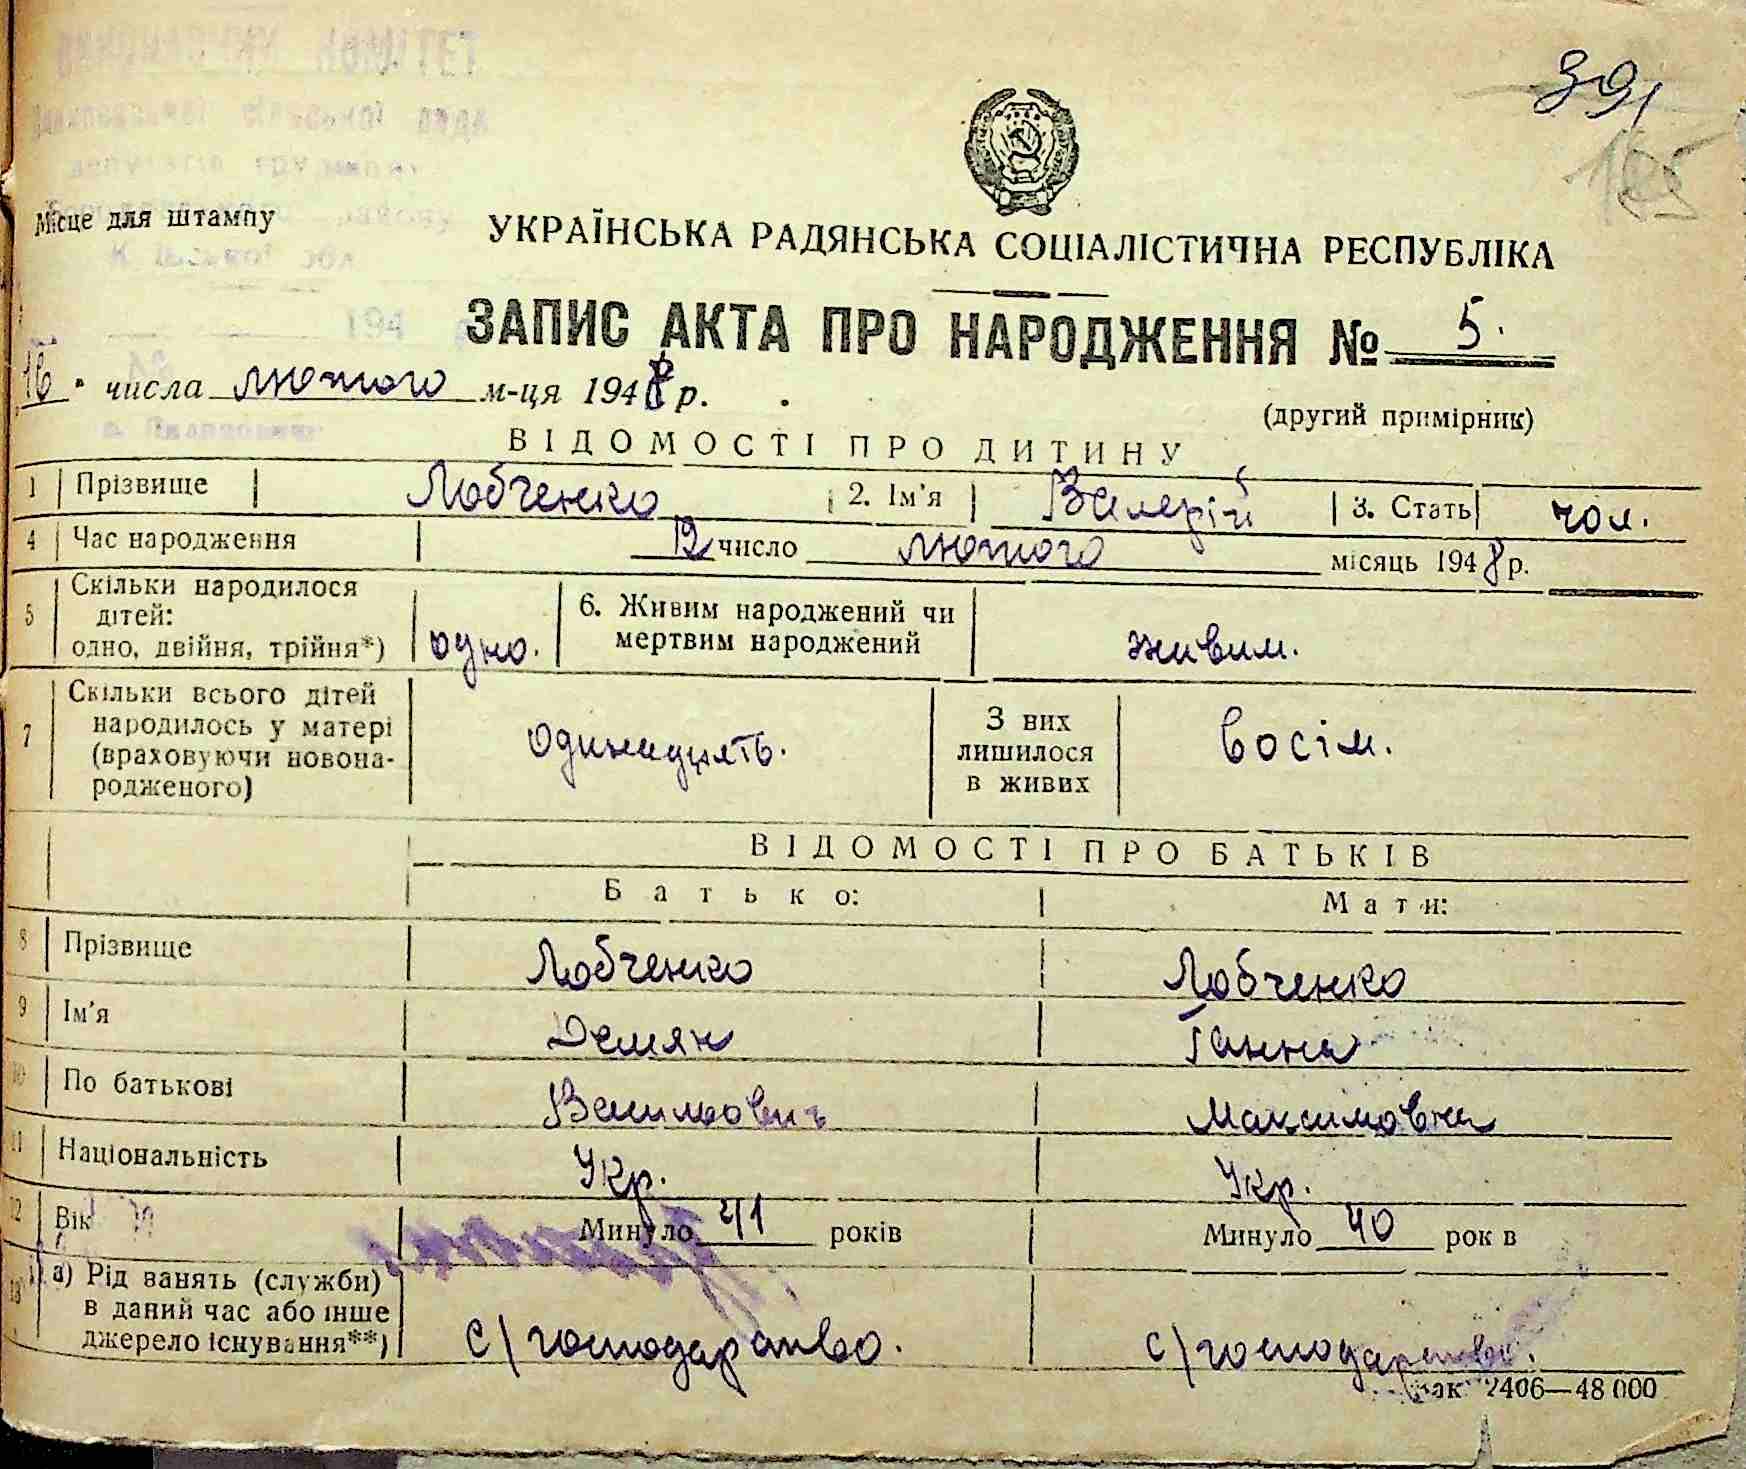 391
Місце для штампу
УКРАЇНСЬКА РАДЯНСЬКА СОЦІАЛІСТИЧНА РЕСПУБЛІКА
ЗАПИС АКТА ПРО НАРОДЖЕННЯ № 5.
16 числа лютого м-ця 1948 р.
(другий примірник)
ВІДОМОСТІ ПРО ДИТИНУ
1 Прізвище Лобченко 2. Ім'я Валерій 3. Стать чол.
4 Час народження 12 число лютого місяць 1948 р.
5 Скільки народилося дітей: одно, двійня, трійня*) одно. 6. Живим народжений чи мертвим народжений живим.
7 Скільки всього дітей народилось у матері (враховуючи новонародженого) одинадцять. З них лишилося в живих восім.
ВІДОМОСТІ ПРО БАТЬКІВ
Батько: Мати:
8 Прізвище Лобченко Лобченко
9 Ім'я Демян Ганна
10 По батькові Васильович Максимовна
11 Національність Укр. Укр.
12 Вік Минуло 41 років Минуло 40 рок в
13 а) Рід занять (служби) в даний час або інше джерело існування**) с/господарство. с/господарство.
Зак 2406—48 000